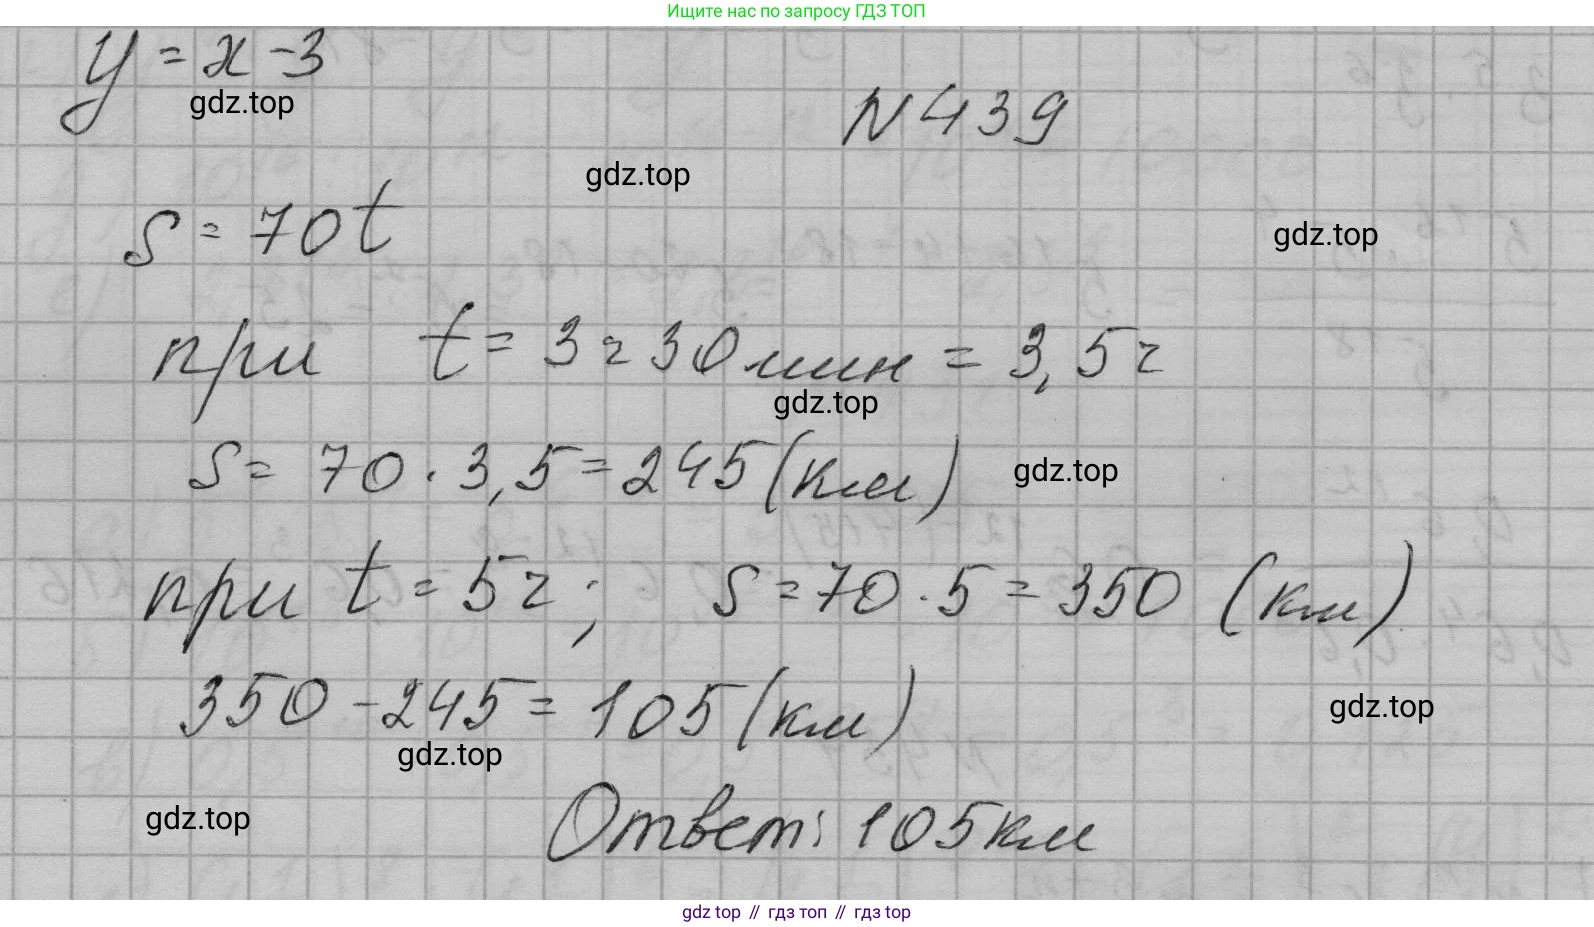 Ищите нас по запросу ГДЗ ТОП
y = x - 3
gdz.top
N 439
gdz.top
s = 70t
gdz.top
при t = 3 ч 30 мин = 3,5 ч
gdz.top
s = 70 · 3,5 = 245 (км)
gdz.top
при t = 5 ч; s = 70 · 5 = 350 (км)
350 - 245 = 105 (км)
gdz.top
gdz.top
gdz.top
Ответ: 105 км
gdz top // гдз топ // гдз top